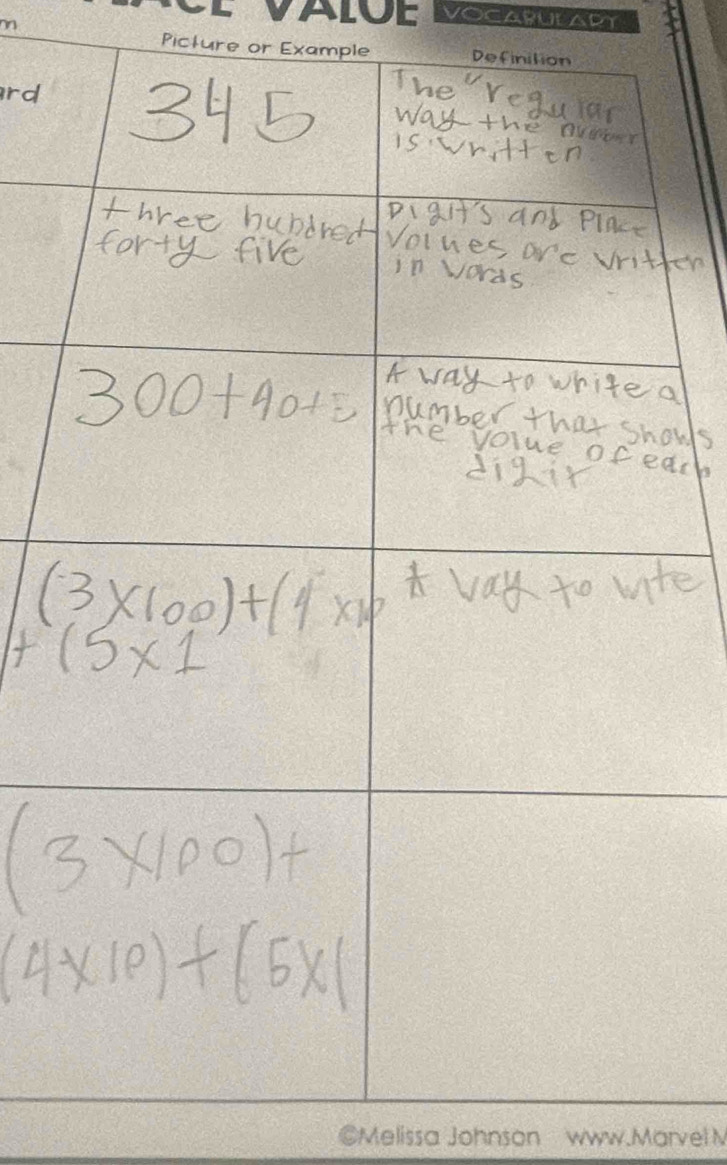 PLACE VALUE VOCABULARY
m
Picture or Example
Definition
ard
345
The "regular
way the number
is written
three hundred
forty five
Digit's and Place
Values are written
in words
300+40+5
A way to write a
number that shows
the value of each
digit
(3x100)+(4x10
+(5x1
A way to wite
(3x100)+
(4x10)+(5x1
©Melissa Johnson www.MarvelM